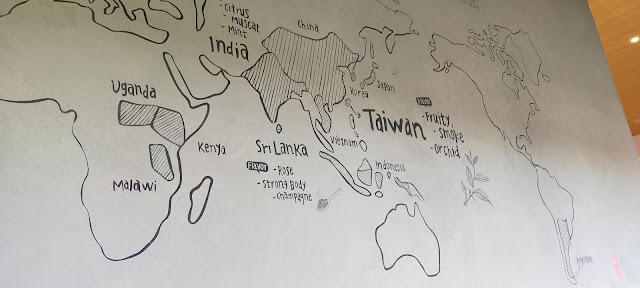 - Citrus
- Muscat
- Mint
India
China
Uganda
Kenya
Malawi
Sri Lanka
Flavor
- Rose
- Strong Body
- Champagne
Korea
Japan
Taiwan
Vietnam
Indonesia
- Fruity
- Smoke
- Orchid
Argentina